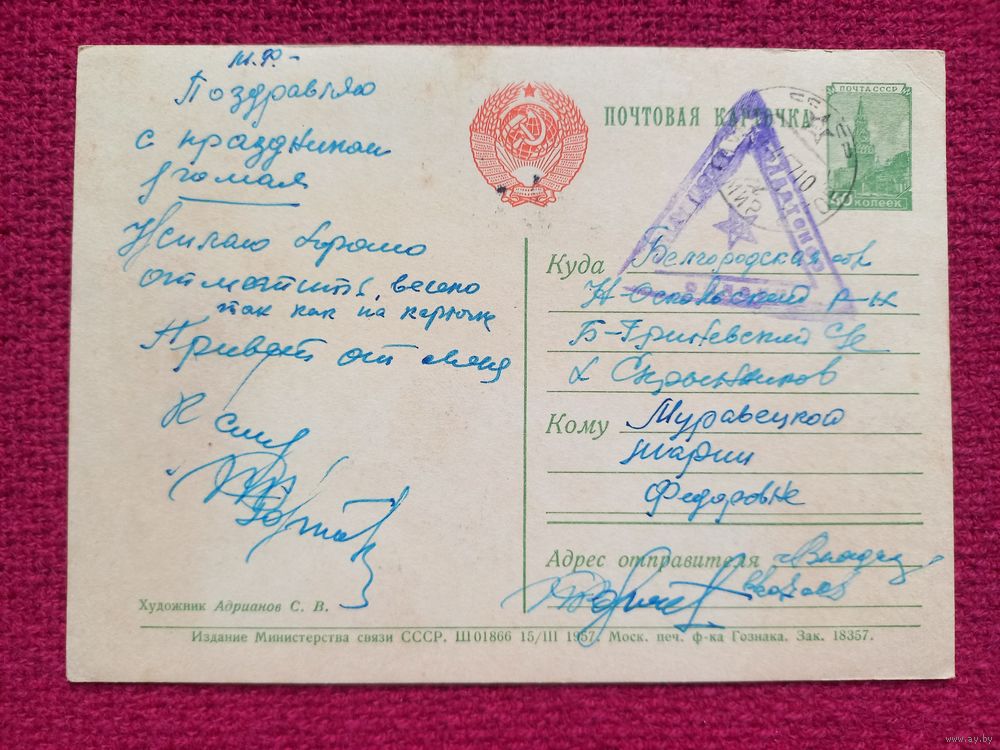 М.Ф.-
Поздравляю
с праздником
1го мая
Желаю хорошо
отметить, весело
так как на карточке
Привет от меня
К сему
ПОЧТОВАЯ КАРТОЧКА
ПОЧТА СССР
40 КОПЕЕК
СОЛДАТСКОЕ
Куда Белгородская обл
Н-Оскольский р-н
Б-
х Скрынников
Кому Муравецкой
Марии
Федоровне
Адрес отправителя
Художник Адрианов С. В.
Издание Министерства связи СССР. Ш01866 15/III 1957. Моск. печ. ф-ка Гознака. Зак. 18357.
www.ay.by